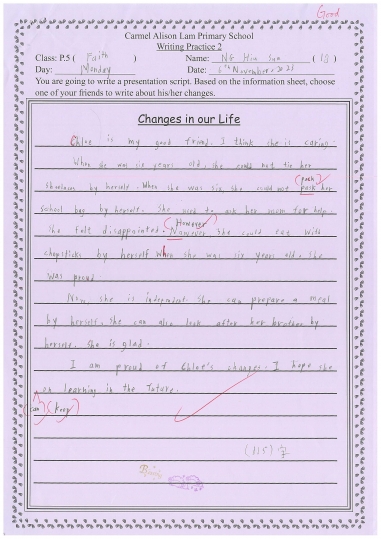 Good
Carmel Alison Lam Primary School
Writing Practice 2
Class: P.5 ( Faith ) Name: NG Hin San ( 18 )
Day: Monday Date: 6th November 2023
You are going to write a presentation script. Based on the information sheet, choose
one of your friends to write about his/her changes.
Changes in our Life
Chloe is my good friend. I think she is caring.
When she was six years old, she could not tie her
shoelaces by herself. When she was six, she could not pack her
(pack)
school bag by herself. She used to ask her mom for help.
(However)
She felt disappointed. However, she could eat with
chopsticks by herself when she was six years old. She
was proud.
Now, she is independent. She can prepare a meal
by herself. She can also look after her brother by
herself. She is glad.
I am proud of Chloe's changes. I hope she
on learning in the future.
(can) (keep)
(115) 字